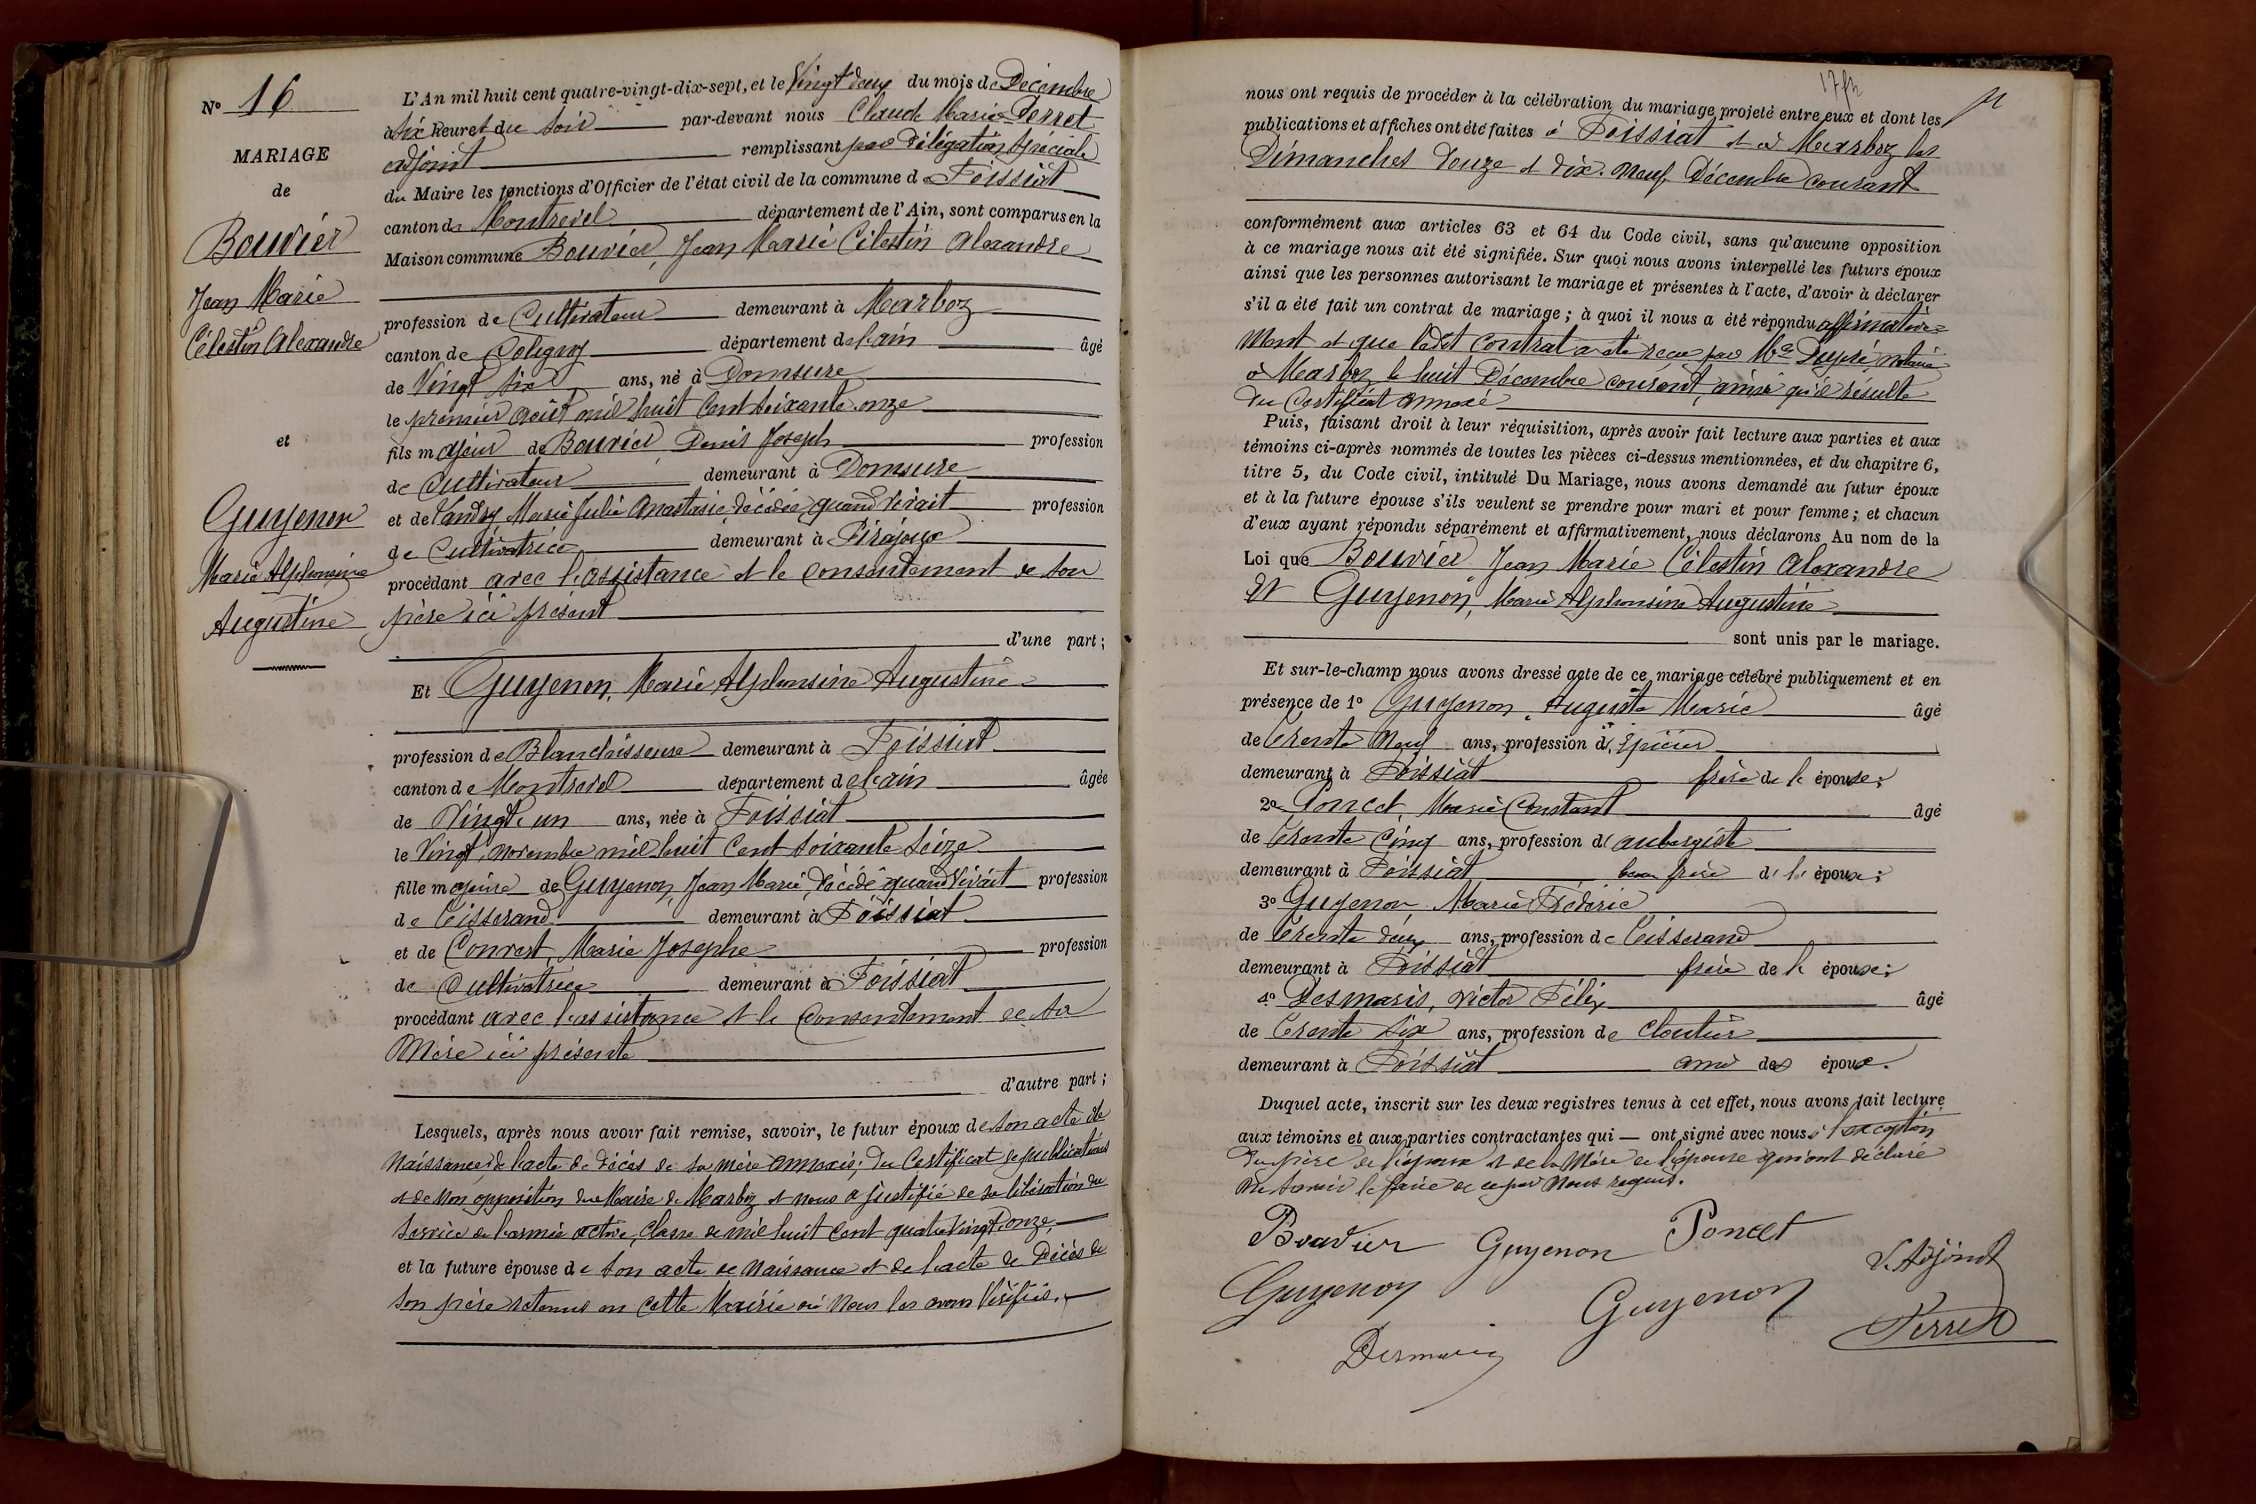 N° 16
MARIAGE
de
Bouvier
Jean Marie
Célestin Alexandre
et
Guyenon
Marie Alphonsine
Augustine
L'An mil huit cent quatre-vingt-dix-sept, et le Vingt deux du mois de Décembre
à Six heures du Soir par-devant nous Claude Marie Perret
adjoint remplissant par délégation spéciale
du Maire les fonctions d'Officier de l'état civil de la commune de Foissiat
canton de Montrevel département de l'Ain, sont comparus en la
Maison commune Bouvier, Jean Marie Célestin Alexandre
profession de Cultivateur demeurant à Marboz
canton de Coligny département de l'ain âgé
de Vingt six ans, né à Domsure
le premier août mil huit Cent soixante onze
fils majeur de Bouvier Denis Joseph profession
de Cultivateur demeurant à Domsure
et de Vandry Marie Julie Anastasie décédée, quand vivait profession
de Cultivatrice demeurant à Pirajoux
procédant avec l'assistance et le Consentement de son
père ici présent
d'une part ;
Et Guyenon, Marie Alphonsine Augustine
profession de Blanchisseuse demeurant à Foissiat
canton de Montrevel département de l'ain âgée
de Vingt un ans, née à Foissiat
le Vingt, novembre mil huit Cent soixante Seize
fille majeure de Guyenon, Jean Marie, décédé quand Vivait profession
de Tisserand demeurant à Foissiat
et de Convert, Marie Josephe profession
de Cultivatrice demeurant à Foissiat
procédant avec l'assistance et le Consentement de sa
Mère ici présente
d'autre part ;
Lesquels, après nous avoir fait remise, savoir, le futur époux de son acte de
Naissance, de l'acte de décès de sa mère annexés ; du Certificat de publications
et de non opposition du Maire de Marboz et nous a justifié de sa libération du
Service de l'armée active, Classe de mil huit Cent quatre Vingt onze,
et la future épouse de son acte de Naissance et de l'acte de Décès de
son père retenus en cette Mairie où Nous les avons Vérifiés.
17
nous ont requis de procéder à la célébration du mariage projeté entre eux et dont les
publications et affiches ont été faites à Foissiat et à Marboz les
Dimanches Douze et dix-neuf Décembre courant
conformément aux articles 63 et 64 du Code civil, sans qu'aucune opposition
à ce mariage nous ait été signifiée. Sur quoi nous avons interpellé les futurs époux
ainsi que les personnes autorisant le mariage et présentes à l'acte, d'avoir à déclarer
s'il a été fait un contrat de mariage ; à quoi il nous a été répondu affirmative=
ment et que ledit Contrat a été reçu par Me Dupré, notaire
à Marboz le huit Décembre courant, ainsi qu'il résulte
du Certificat annexé
Puis, faisant droit à leur réquisition, après avoir fait lecture aux parties et aux
témoins ci-après nommés de toutes les pièces ci-dessus mentionnées, et du chapitre 6,
titre 5, du Code civil, intitulé Du Mariage, nous avons demandé au futur époux
et à la future épouse s'ils veulent se prendre pour mari et pour femme ; et chacun
d'eux ayant répondu séparément et affirmativement, nous déclarons Au nom de la
Loi que Bouvier Jean Marie Célestin Alexandre
Et Guyenon, Marie Alphonsine Augustine
sont unis par le mariage.
Et sur-le-champ nous avons dressé acte de ce mariage célébré publiquement et en
présence de 1° Guyenon, Auguste Marie âgé
de Trente Neuf ans, profession d'Epicier
demeurant à Foissiat frère de l'épouse ;
2° Poncet, Marie Constant âgé
de Trente Cinq ans, profession d'aubergiste
demeurant à Foissiat beau frère de l'épouse ;
3° Guyenon Marie Frédéric
de Trente deux ans, profession de Tisserand
demeurant à Foissiat frère de l'épouse ;
4° Desmaris, Victor Félix âgé
de Trente Six ans, profession de Cloutier
demeurant à Foissiat ami des époux.
Duquel acte, inscrit sur les deux registres tenus à cet effet, nous avons fait lecture
aux témoins et aux parties contractantes qui — ont signé avec nous à l'exception
du père de l'époux et de la Mère de l'épouse qui ont déclaré
ne savoir le faire de ce par Nous requis.
Bouvier Guyenon Poncet
Guyenon Guyenon L'Adjoint
Desmaris Perret